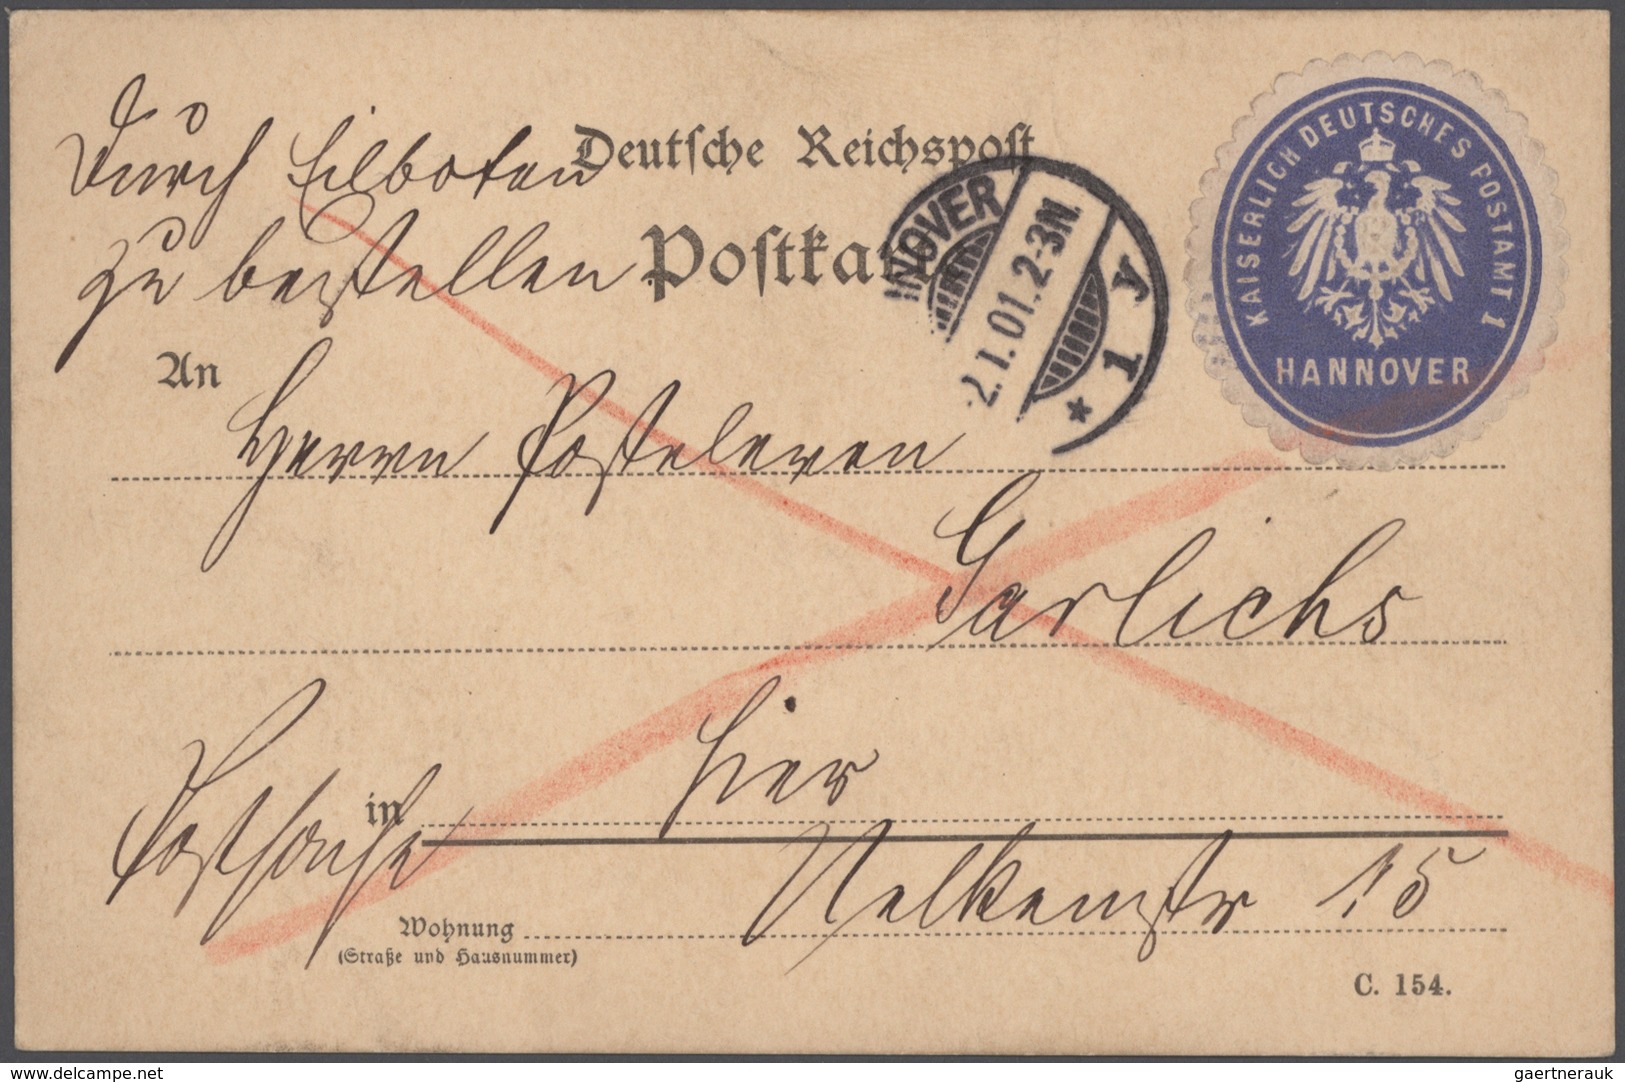 Durch Eilboten
zu bestellen
Deutsche Reichspost
Postkarte
NNOVER
2.1.01.2-3N.
* 1 y
KAISERLICH DEUTSCHES POSTAMT 1
HANNOVER
An
Herrn Posteleven
Garlichs
in hier
Postsache
Nelkenstr 15
Wohnung
(Straße und Hausnummer)
C. 154.
www.delcampe.net
gaertnerauk